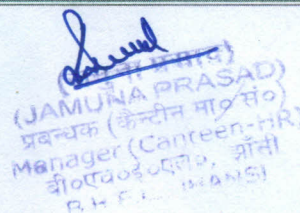 (जमुना प्रसाद)
(JAMUNA PRASAD)
प्रबन्धक (कैन्टीन मा० सं०)
Manager (Canteen-HR)
बी०एच०ई०एल०, झाँसी
B.H.E.L., JHANSI